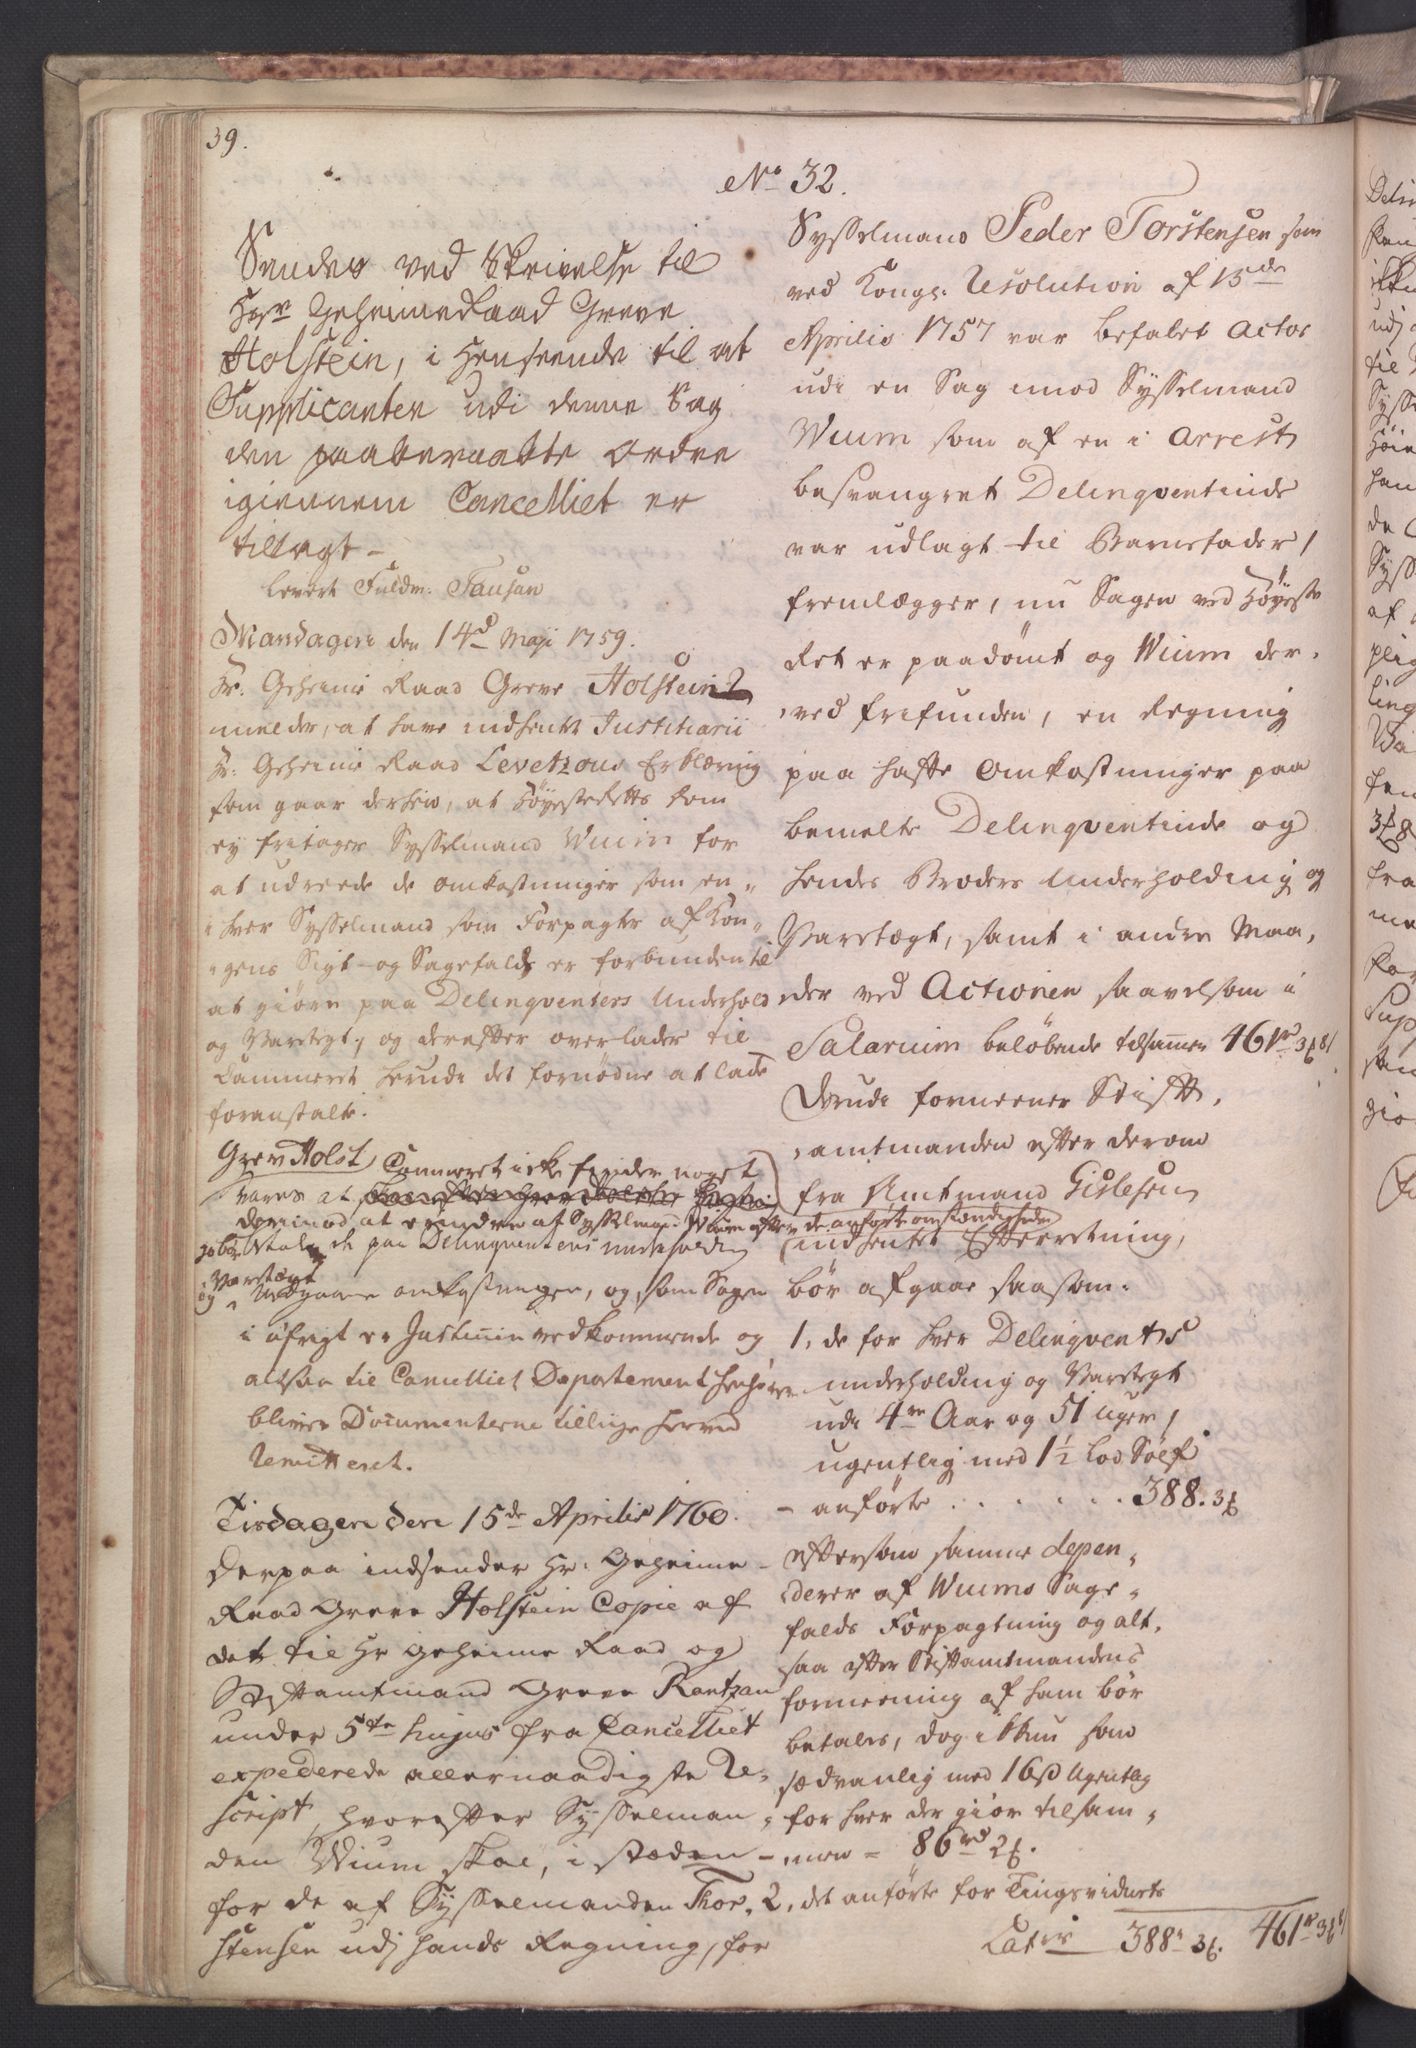 39.
No 32.
Sendes ved Skrivelse til
Hgr. GeheimeRaad Greve
Holstein, i Henseende til at
Supplicanten udi denne Sag
den paaberaabte Ordre
igiennem Cancelliet er
tillagt-
levert Fuldm: Tausan
Mandagen den 14d Maji 1759.
Hr: Geheime Raad Greve Holstein
melder, at have indhente Justitiarii
Hr: Geheime Raad Levetzous Erklæring
som gaar derhen, at Høyesterettes Dom
ey fritager Sysselmand Wium for
at udreede de Omkostninger som en-
hver Sysselmand som Forpagter af Kon-
gens Sigt- og Sagefald er forbunden til
at giøre paa Delinqventers Underhold
og Varetegt, og derefter overlader til
Cammeret herudi det fornødne at lade
foranstalte.
Grev Holst: Cammeret icke finder noget
Svares at
derimod at erindre at Sysselmand Wium efter de anførte omstændigheder
bør betale de paa Delinqventens underholding
og Varetægt
medgaaene omkostninger, og som Sagen
i øfrigt er Justicien vedkommende og
altsaa til Cancelliet Departement henhører
bliver Documenterne tillige herved
remitteret.
Tisdagen den 15de Aprilis 1760.
Derpaa indsender Hr: Geheime-
Raad Greve Holstein Copie af
det til Hr Geheime Raad og
Stiftamtmand Greve Rantzau
under 5te hujus fra Cancelliet
expederede allernaadigste Re-
script, hvorefter Sysselman-
den Wium skal, i stæden
for de af Sysselmanden Thor-
stensen udj hands Regning, for
Sysselmand Peder Torstensen som
ved Kongl: Resolution af 15de
Aprilis 1757 var befalet Actor
udi en Sag imod Sysselmand
Wium som af en i Arrest
besvangret Delinqventinde
var udlagt til Barnefader,
fremlægger, nu Sagen ved Høyeste
Ret er paadømt og Wium der-
ved frifunden, en Regning
paa hafte Omkostninger paa
bemelte Delinqventinde og
hendes Broders Underholding og
Varetægt, samt i andre Maa-
der ved Actionen saavelsom i
Salarium beløbende tilsammen 461rd 3 8
Derudi formeener Stift-
amtmanden efter derom
fra Amtmand Gislesen
indhentet Efterretning,
bør afgaae saasom:
1, de for hver Delinqvents
underholding og Varetegt
udi 4re Aar og 51 uger,
ugentlig med 1½ lod Sølf
anførte . . . . . . . 388. 3
eftersom samme depen-
derer af Wiums Sage-
falds Forpagtning og alt-
saa efter Stiftamtmandens
formeening af ham bør
betales, dog ikkun som
sædvanlig med 16 ß Ugentlig
for hver der giør tilsam-
men = 86rd 2.
2, det anførte for Tingsvidnets
Lateris 388r 3. 461r 3 8